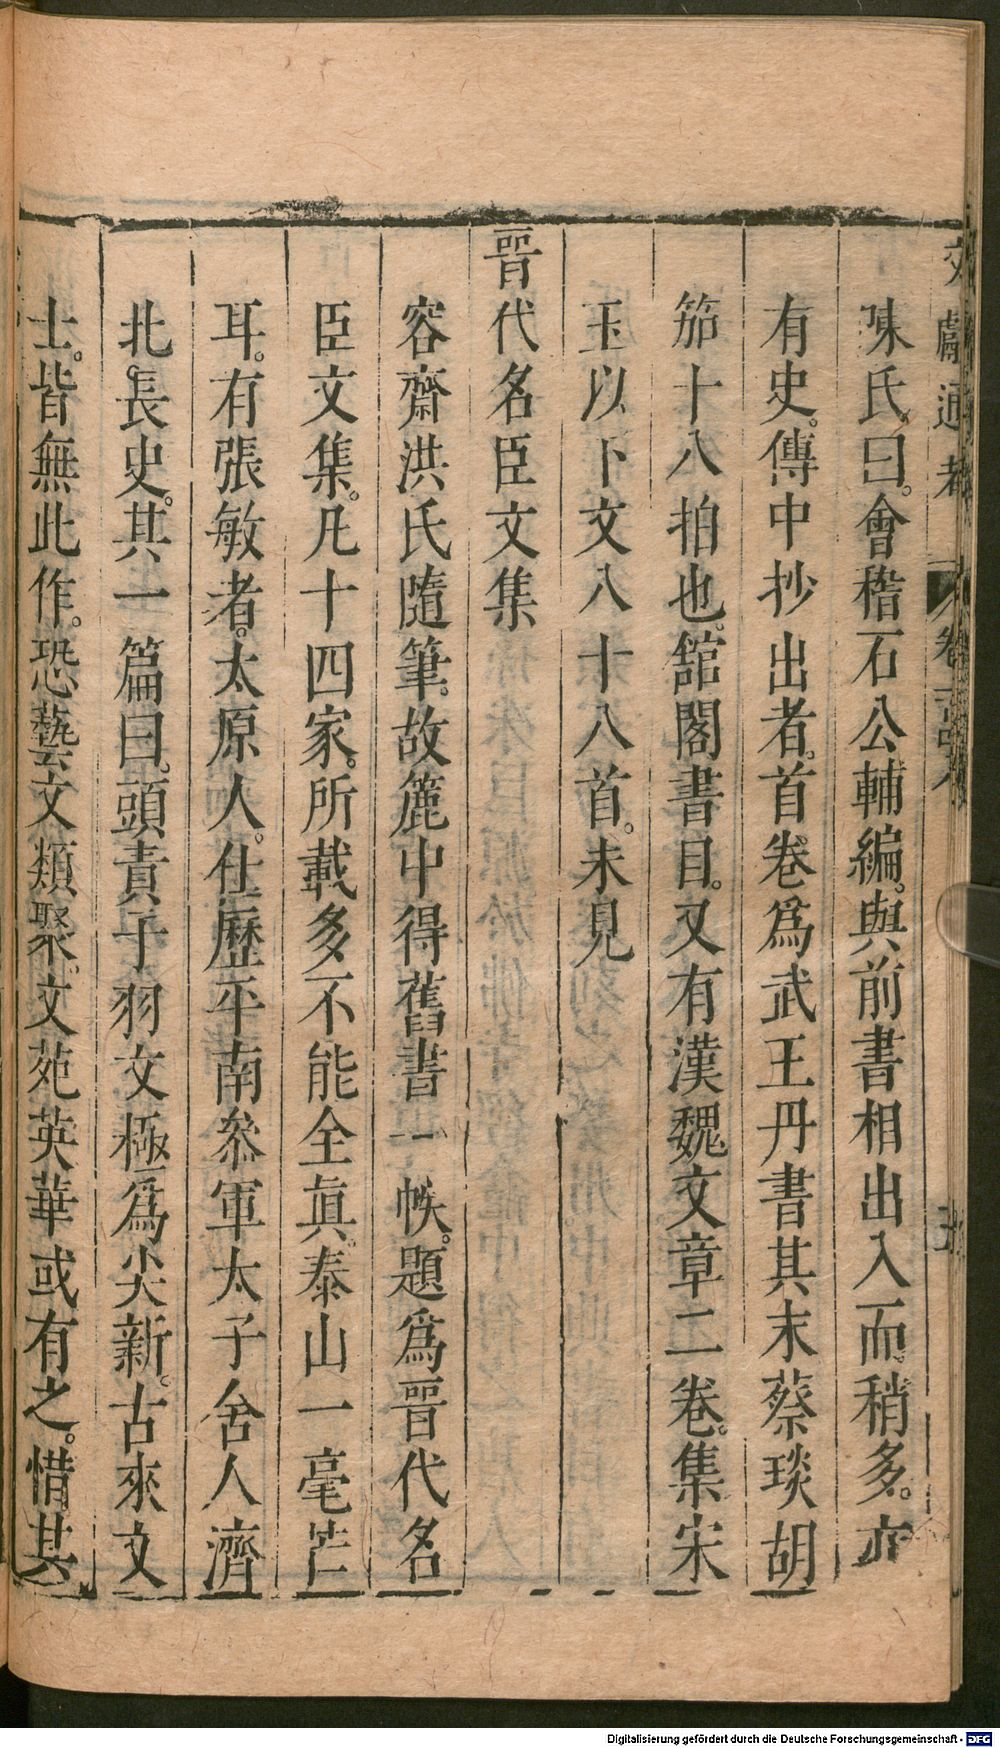 文獻通考
卷
陳氏曰。會稽石公輔編。與前書相出入而。稍多。亦
有史。傳中抄出者。首卷爲武王丹書其末蔡琰胡
笳十八拍也。舘閣書目。又有漢魏文章二卷。集宋
玉以卜文八十八首。未見
晉代名臣文集
容齋洪氏隨筆。故簏中得舊書一帙。題爲晉代名
臣文集。凡十四家。所載多不能全眞。泰山一毫芒
耳。有張敏者。太原人。仕歷平南叅軍太子舍人濟
北。長史。其一篇曰。頭責子羽文極爲尖新。古來文
士。皆無此作。恐藝文類聚。文苑英華或有之。惜其
Digitalisierung gefördert durch die Deutsche Forschungsgemeinschaft - DFG